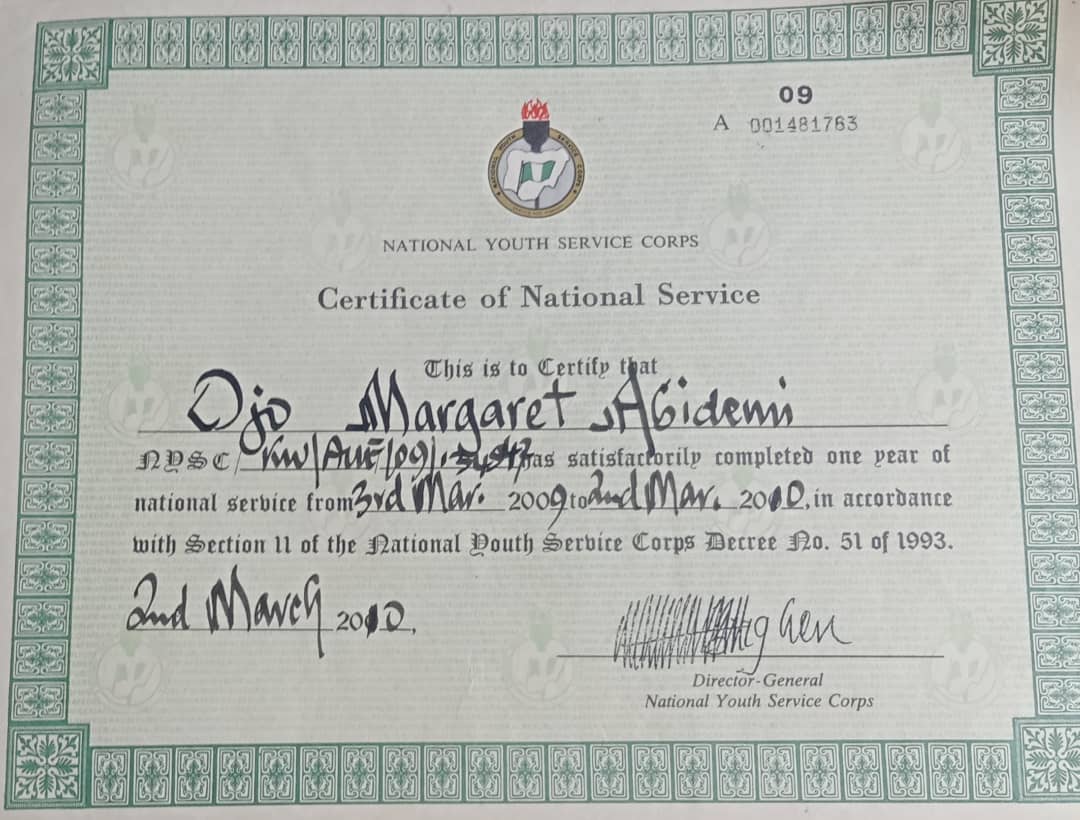 09
A 001481763
NATIONAL YOUTH SERVICE CORPS
NATIONAL YOUTH SERVICE CORPS
Certificate of National Service
This is to Certify that
Ojo Margaret Abidemi
NYSC/ has satisfactorily completed one year of
national service from 3rd Mar. 2009 to 2nd Mar. 2010, in accordance
with Section 11 of the National Youth Service Corps Decree No. 51 of 1993.
2nd March 2010.
Director-General
National Youth Service Corps